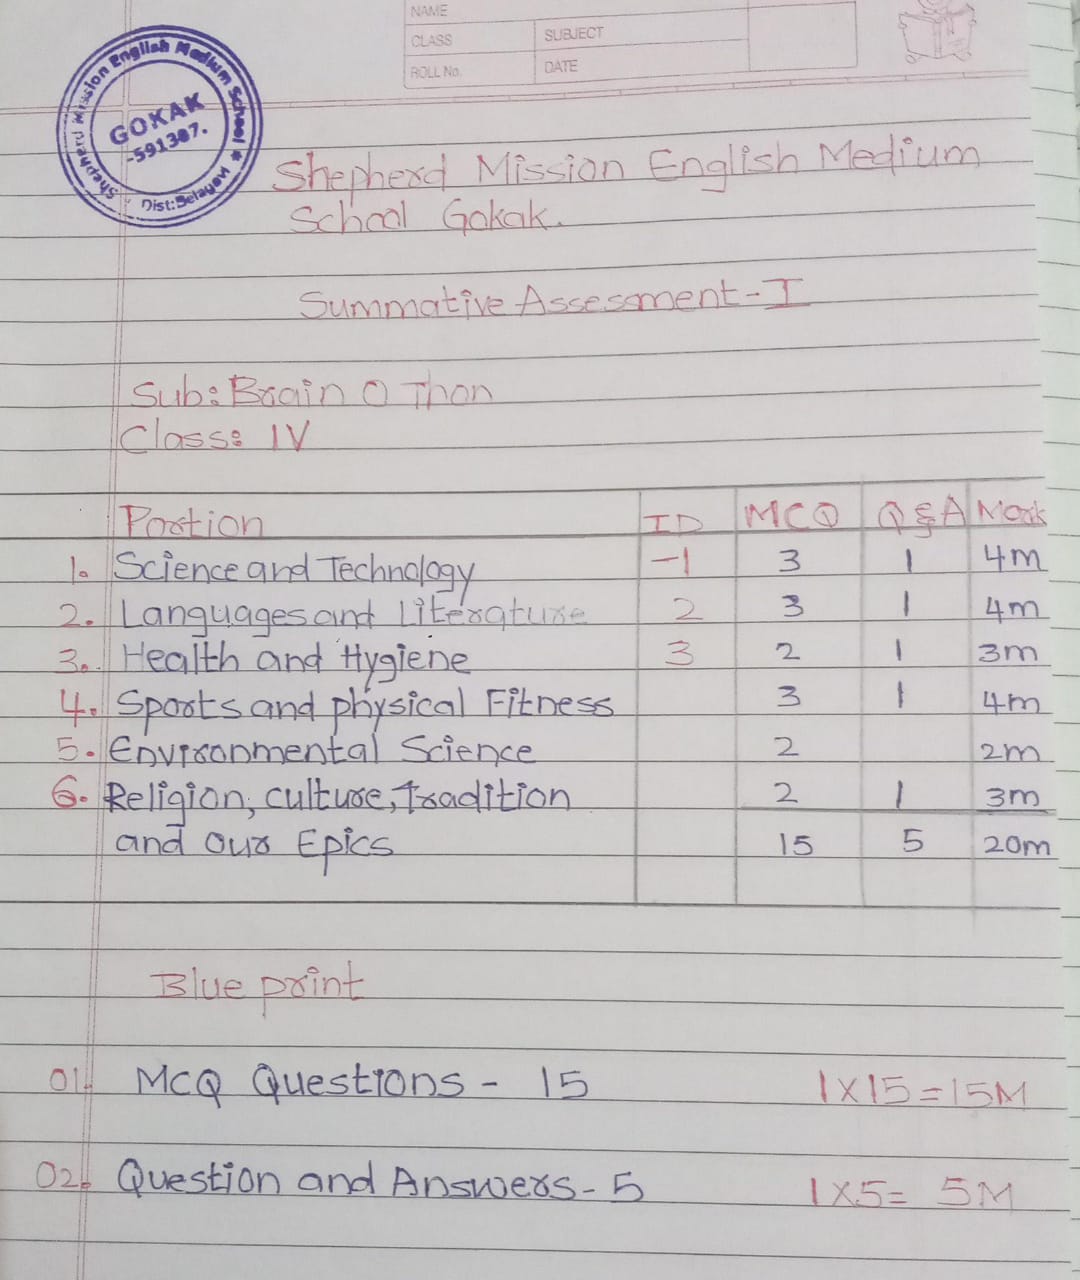 NAME
CLASS SUBJECT
ROLL No. DATE
Shepherd Mission English Medium School ★ Dist:Belagavi
GOKAK
-591307.
Shepherd Mission English Medium
School Gokak.
Summative Assessment-I
Sub: Brain O Thon
Class: IV
Portion ID MCQ Q & A Mark
1. Science and Technology -1 3 1 4m
2. Languages and Literature 2 3 1 4m
3. Health and Hygiene 3 2 1 3m
4. Sports and physical Fitness 3 1 4m
5. Environmental Science 2 2m
6. Religion, culture, tradition 2 1 3m
and Our Epics 15 5 20m
Blue print
01. MCQ Questions - 15 1x15=15M
02. Question and Answers - 5 1x5= 5M